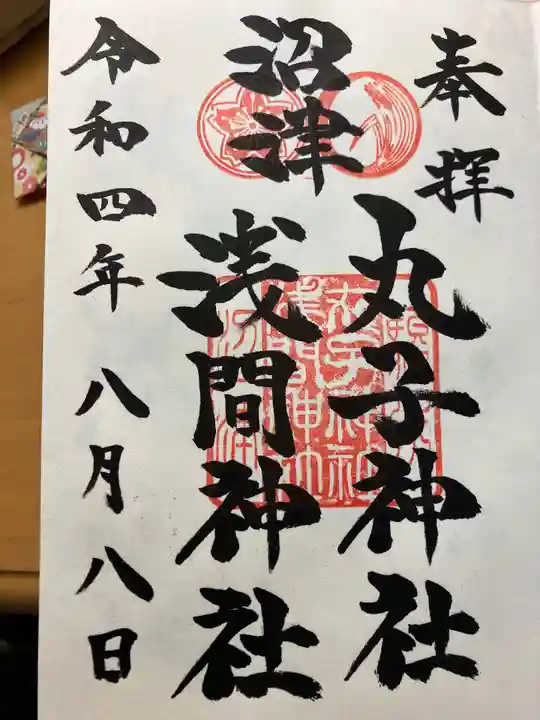 奉拝
沼津
丸子神社
浅間神社
令和四年八月八日